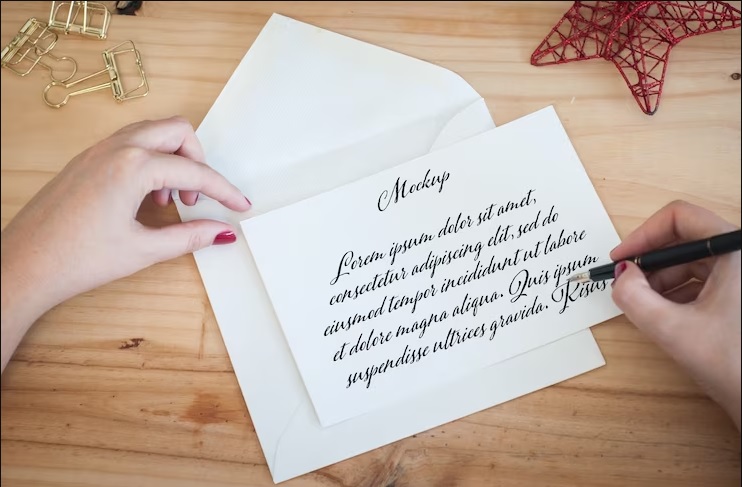 Mockup
Lorem ipsum dolor sit amet,
consectetur adipiscing elit, sed do
eiusmod tempor incididunt ut labore
et dolore magna aliqua. Quis ipsum
suspendisse ultrices gravida. Risus